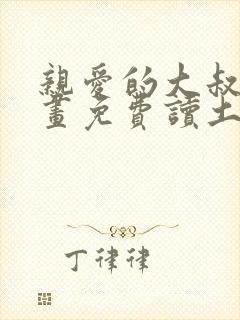 親愛的大叔
畫免費讀土
丁律律